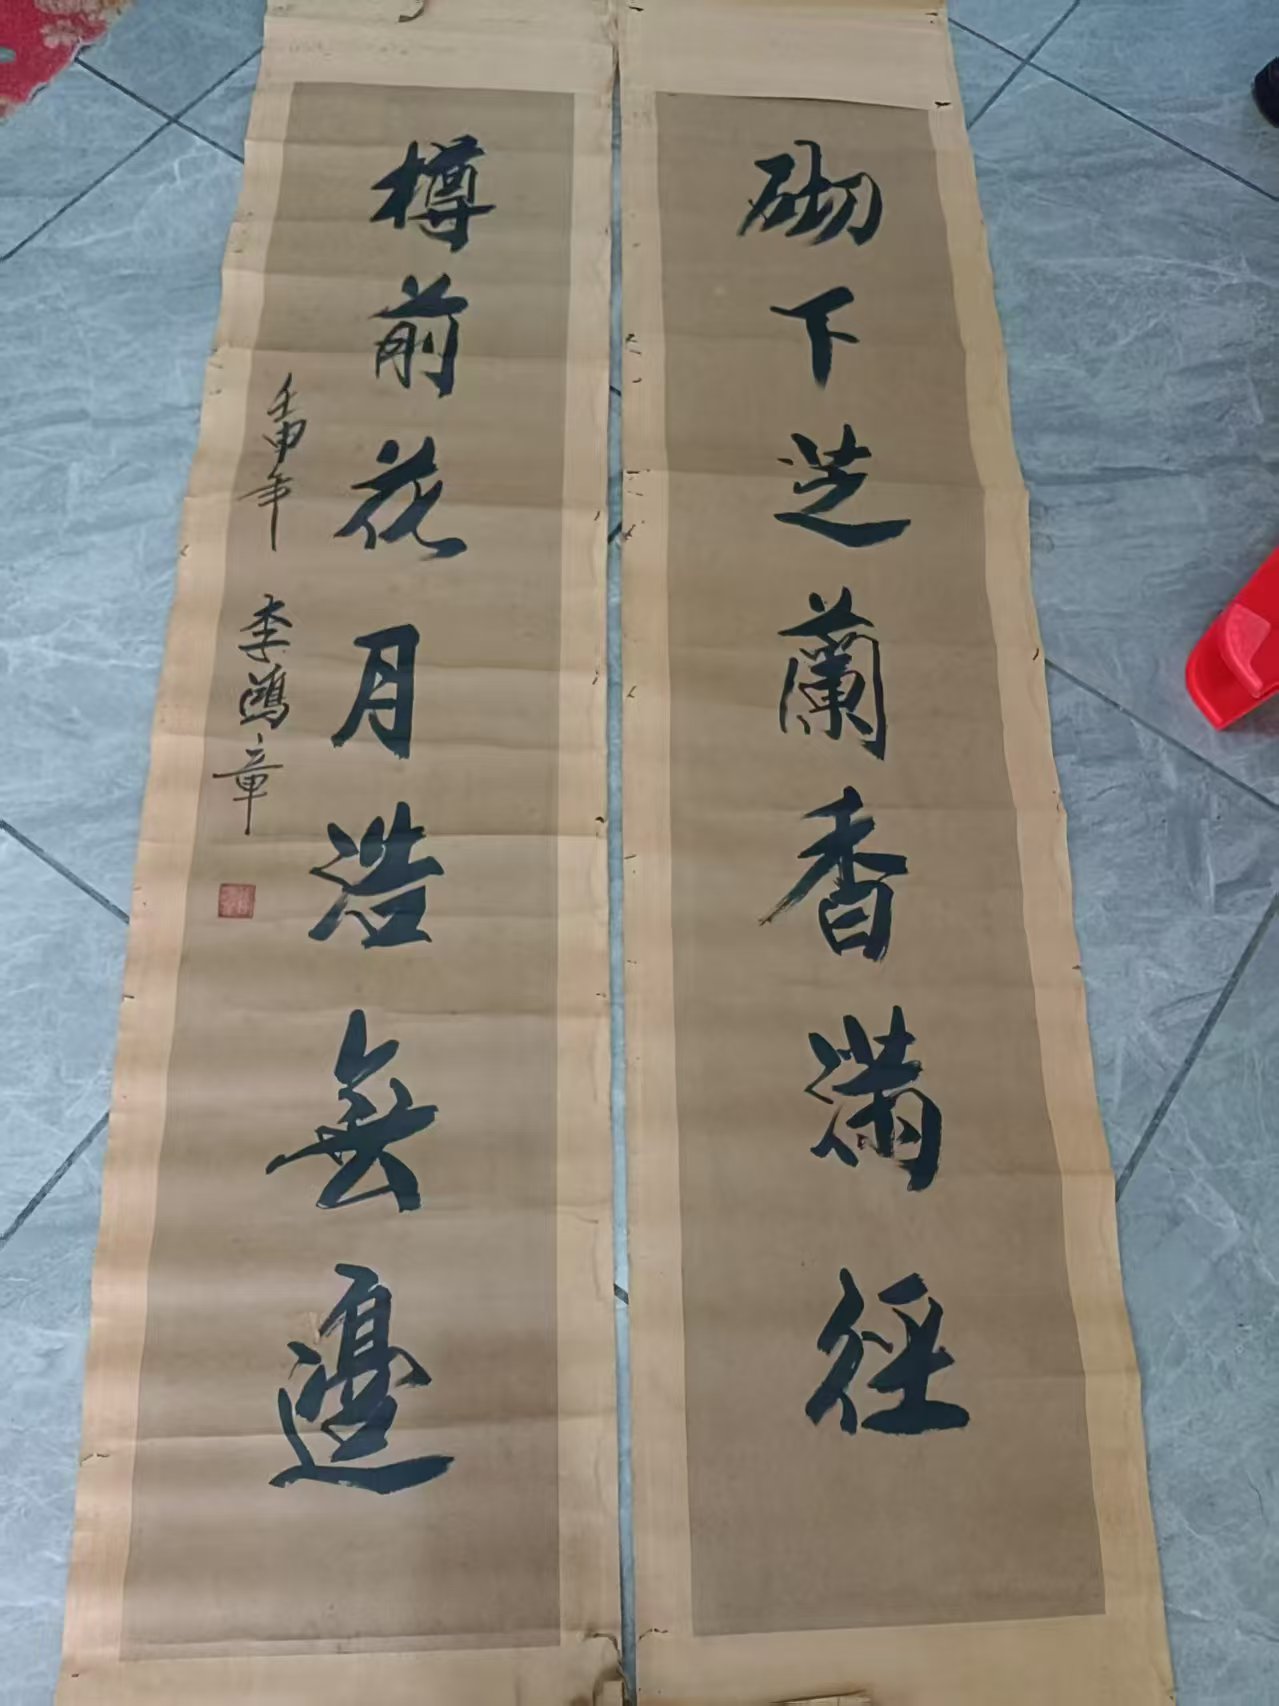 砌下芝蘭香滿徑
樽前花月浩無邊
壬申年 李鴻章